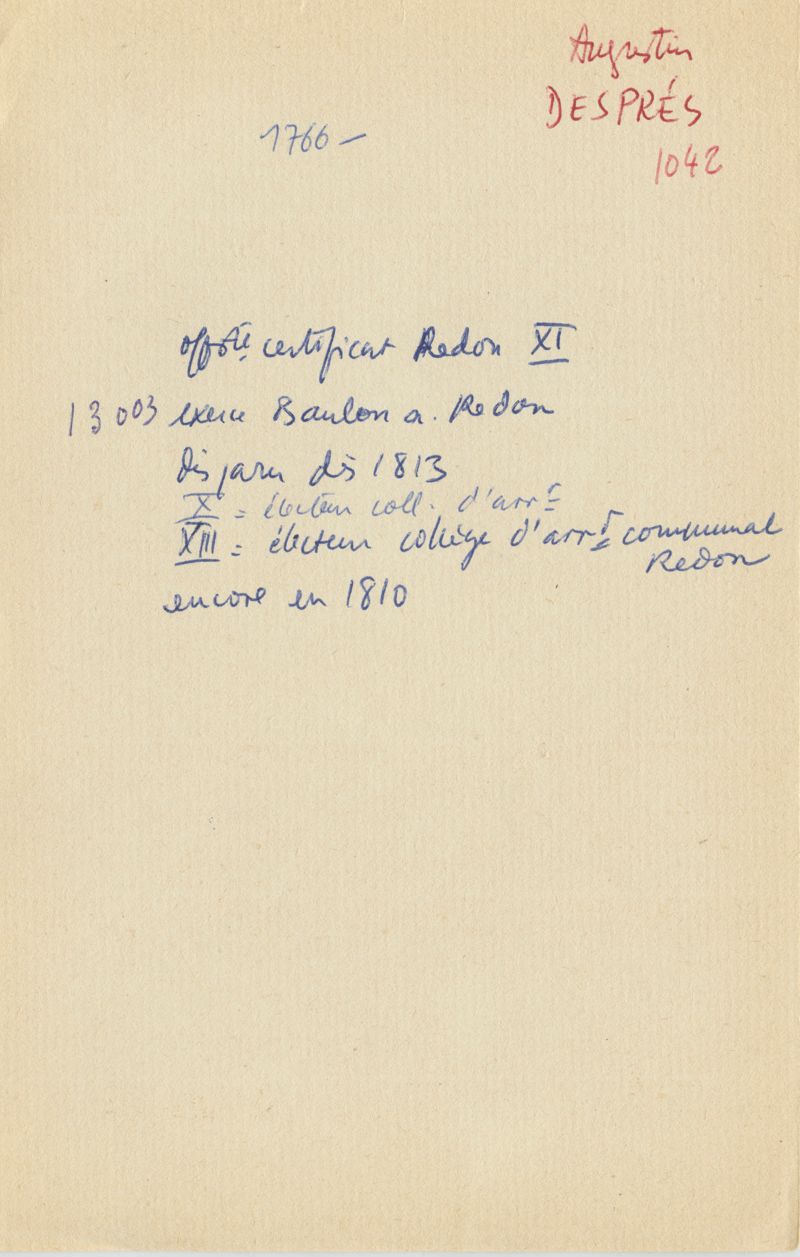 Augustin
DESPRÉS
1042
1766 –
certificat Redon XI
13003 exerce Baulon a. Redon
disparu dès 1813
X = électeur coll. d'arrt
XIII = électeur collège d'arrt communal
Redon
encore en 1810